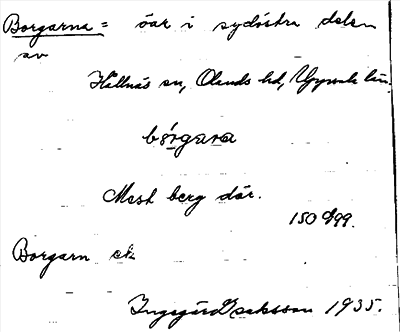 Borgarna = öar i sydöstra delen
av
Hållnäs sn, Olands hd, Uppsala län.
bórgara
Mest berg där.
150 999.
Borgarn ek
Ingegärd Isaksson 1935.